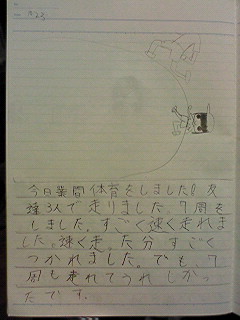 今日業間体育をしました！友
達3人で走りました。7周を
しました。すごく速く走れま
した。速く走った分すごく
つかれました。でも、7
周も走れてうれしかっ
たです。